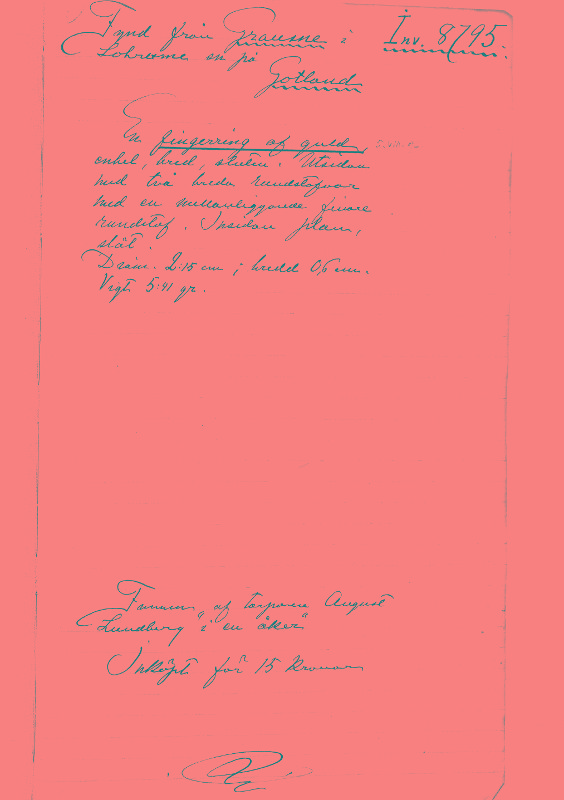 Fynd från Grausne i
Inv. 8795.
Lokrume sn på
Gotland
En fingerring af guld,
enkel, bred, sluten. Utsidan
med två breda rundstafvar
med en mellanliggande finare
rundstaf. Insidan plan,
slät.
Diam. 2:15 cm; bredd 0,6 cm.
Vigt 5:41 gr.
Funnen af torparen August
Lundberg "i en åker"
Inköpt för 15 kronor